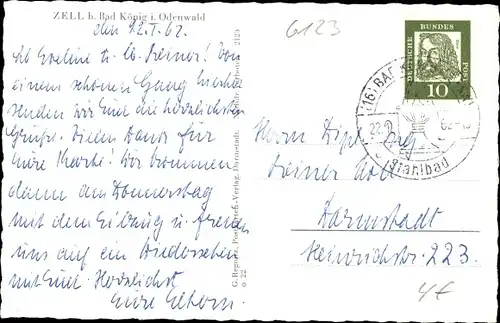 ZELL b. Bad König i. Odenwald
den 22.7.62.
Lb Eveline u. lb. Reiner! Von
einem schönen Gang hierher
senden wir Euch die herzlichsten
Grüsse. Vielen Dank für
Eure Karte! Wir kommen
dann am Donnerstag
mit dem Eilzug u. freuen
uns auf ein Wiedersehen
mit Euch Herzlichst
Eure Eltern.
G. Postkarten-Verlag, Darmstadt.
o 22
2125
6123
DEUTSCHE
BUNDES
POST
10
(16) BAD
62
Stahlbad
Herrn Dipl. Ing.
Reiner
Darmstadt
Heinrichstr. 223.
4€